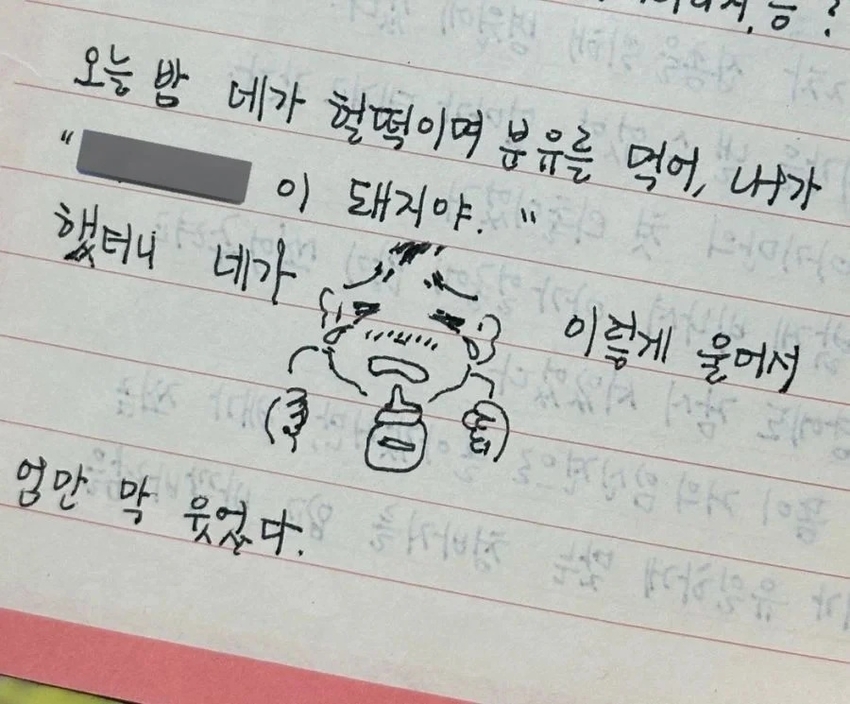 오늘 밤 네가 헐떡이며 분유를 먹어, 내가
" 이 돼지야. "
했더니 네가 이렇게 울어서
엄만 막 웃었다.